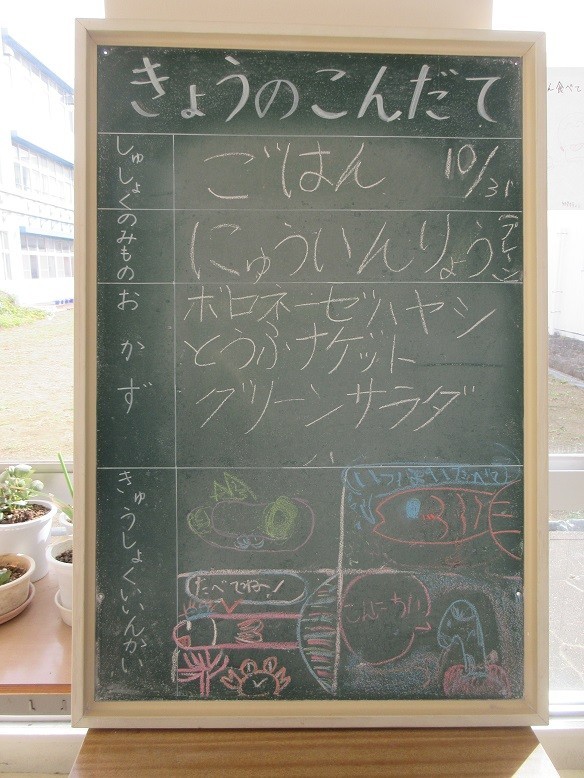 きょうのこんだて
しゅしょく
ごはん
10/31
のみもの
にゅういんりょう
(プレーン)
おかず
ボロネーゼハヤシ
とうふナゲット
グリーンサラダ
きゅうしょくいいんかい
たべてね!
こんにちは
ん食べて